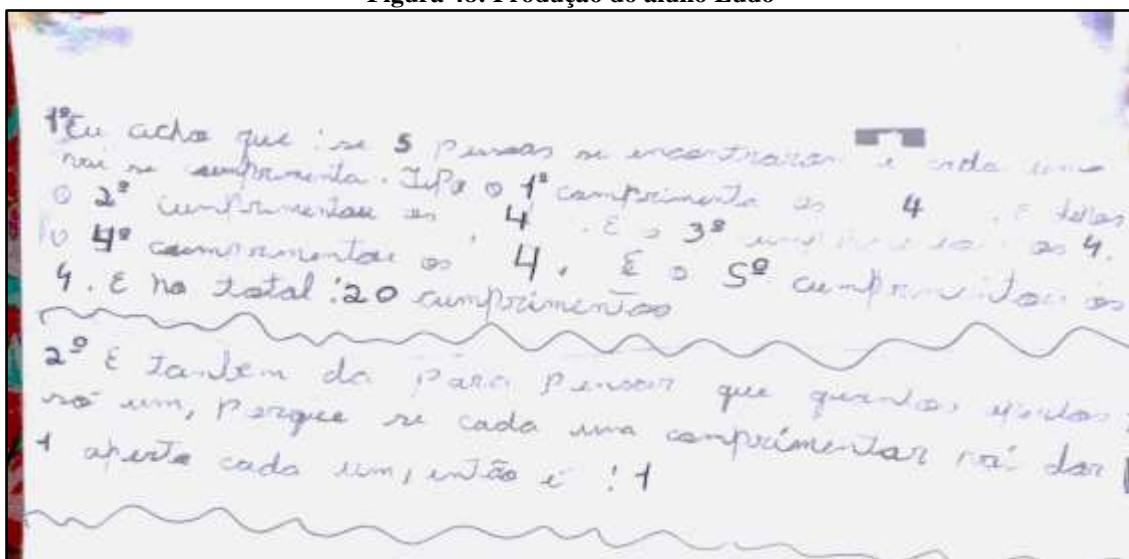 Figura 48: Produção do aluno Ludo
1º Eu acho que : se 5 pessoas se encontraram e cada uma
vai se cumprimenta. Tipo o 1º comprimenta os 4 . E
o 2º cumprimentou os 4 . E o 3º os 4.
o 4º os 4. E o 5º cumprimentou os
4. E no total : 20 cumprimentos
2º E tanbem da para pensar que
só um, porque se cada uma comprimentar vai dar
1 aperto cada um, então é : 1